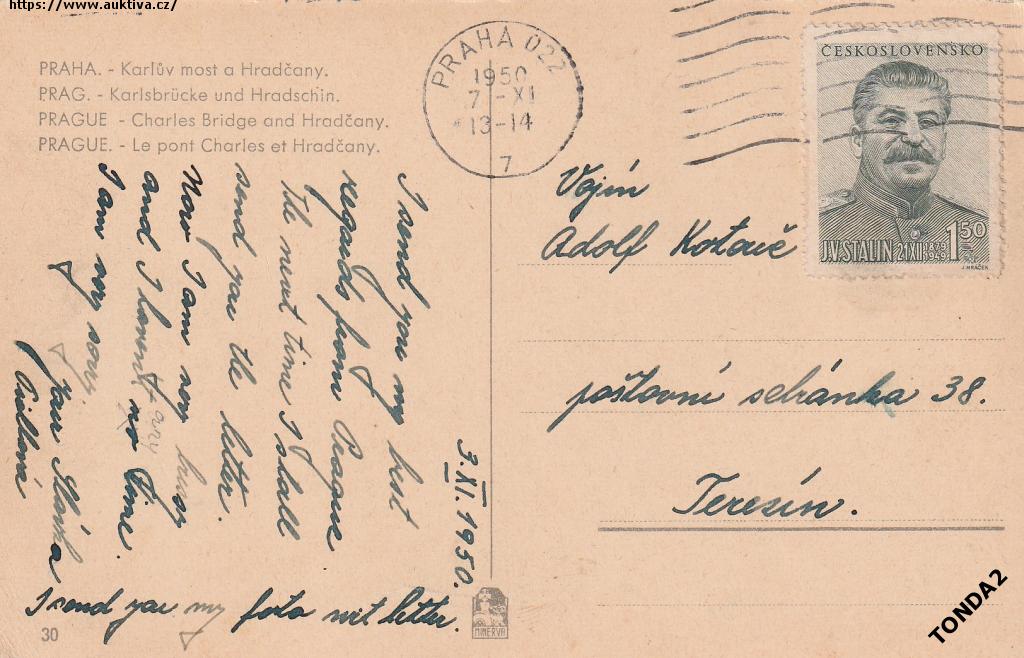 https://www.auktiva.cz/
PRAHA. - Karlův most a Hradčany.
PRAG. - Karlsbrücke und Hradschin.
PRAGUE - Charles Bridge and Hradčany.
PRAGUE. - Le pont Charles et Hradčany.
PRAHA 022
1950
7 -XI
*13-14
7
ČESKOSLOVENSKO
J.V. STALIN 21XII 1879 1949 1 50
J. MRÁČEK
3. XI. 1950.
I send you my best
regards from Prague
The next time I shall
send you the letter.
Now I am very busy
and I havent any no time.
I am very sorry
Your Slávka
I send you my foto wit letter.
Vojín
Adolf
poštovní schránka 38.
Terezín.
30
MINERVA
TONDA2